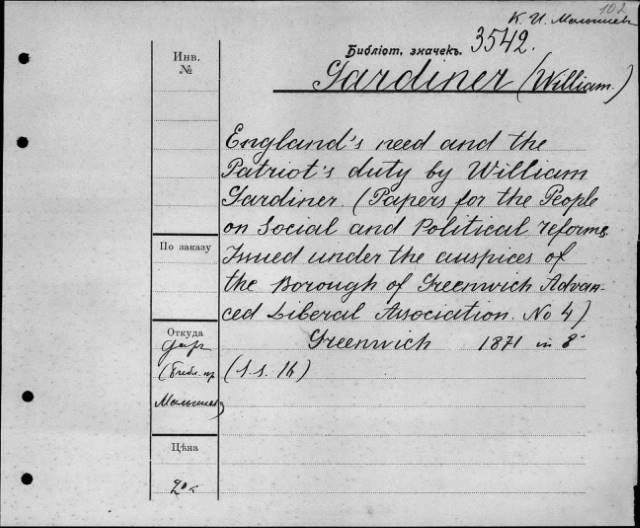 102
К. И. Малышев
Библіот. значекъ. 3542.
Инв.
№
Gardiner (William.)
England's need and the
Patriot's duty by William
Gardiner. (Papers for the People
on Social and Political reforms.
Issued under the auspices of
the Borough of Greenwich Advan-
ced Liberal Association. No 4)
Greenwich 1871 in 8°
(1 s. 16)
По заказу
Откуда
дар
(библ. пр
Малышев)
Цѣна